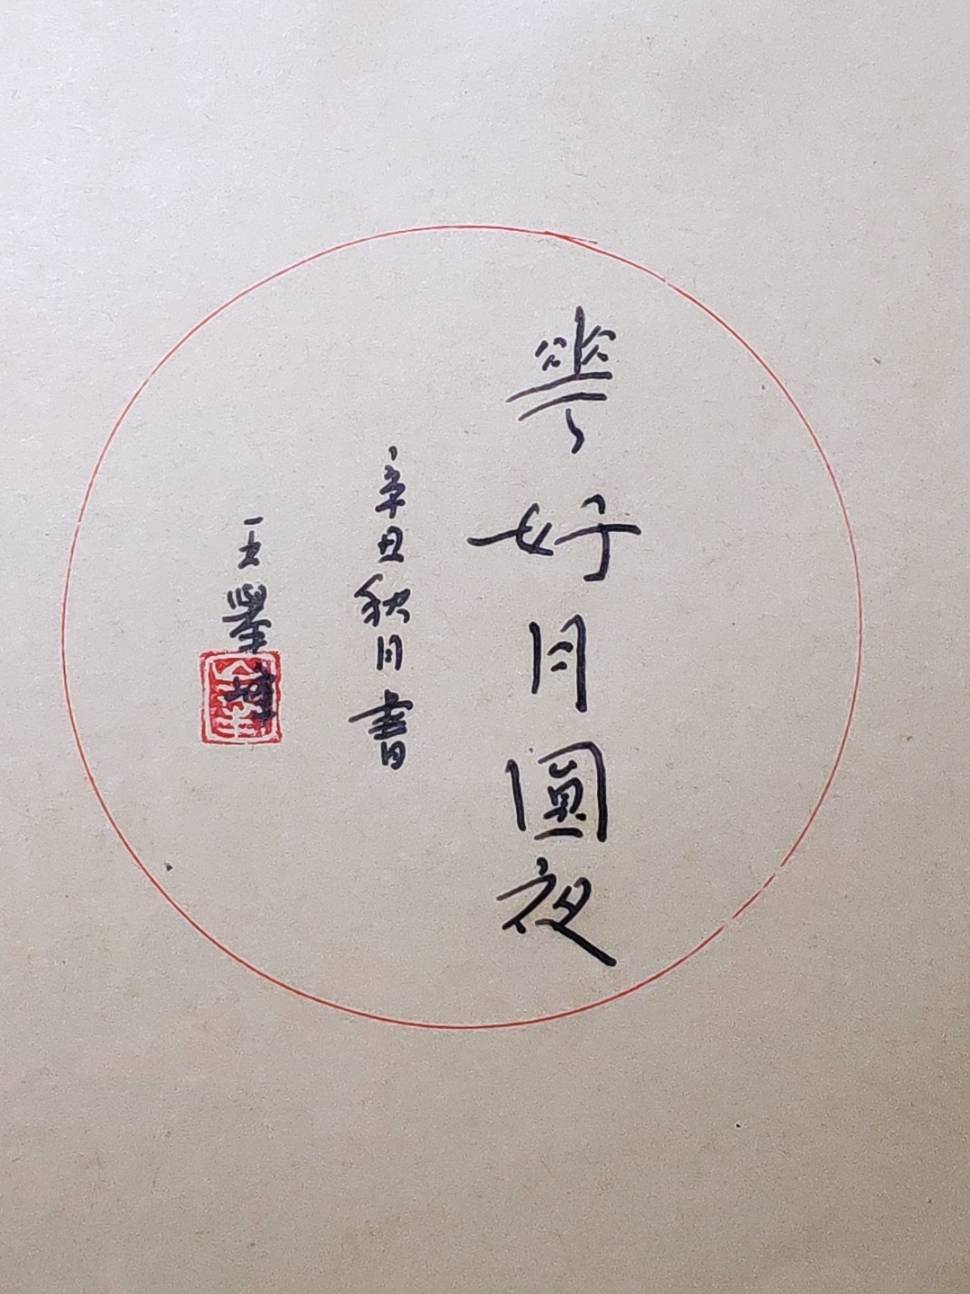 華好月圓夜
辛丑秋月書
王